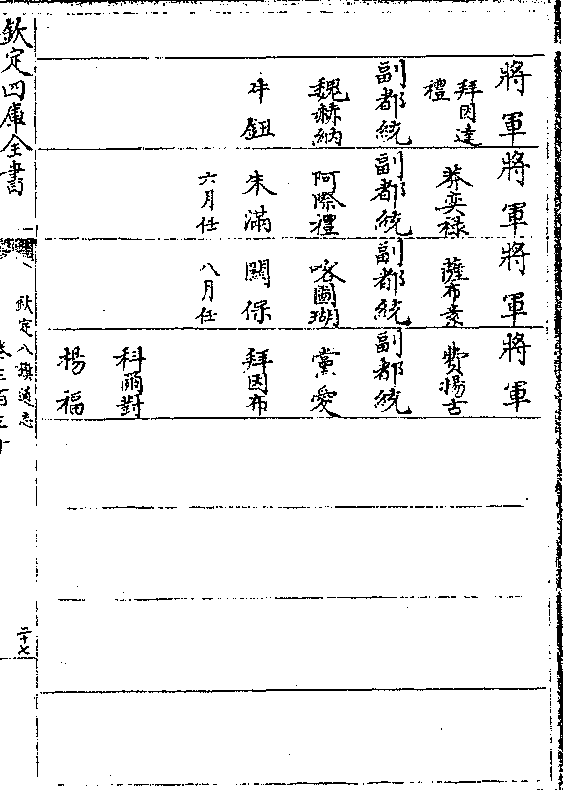 將軍
拜因達
禮
副都統
魏赫納
牛鈕
將軍
莽奕禄
副都統
阿際禮
朱滿
六月任
將軍
薩布素
副都統
喀圖瑚
關保
八月任
將軍
費揚古
副都統
黨愛
拜因布
科爾對
楊福
欽定四庫全書
欽定八旗通志
卷三百三十
二十七